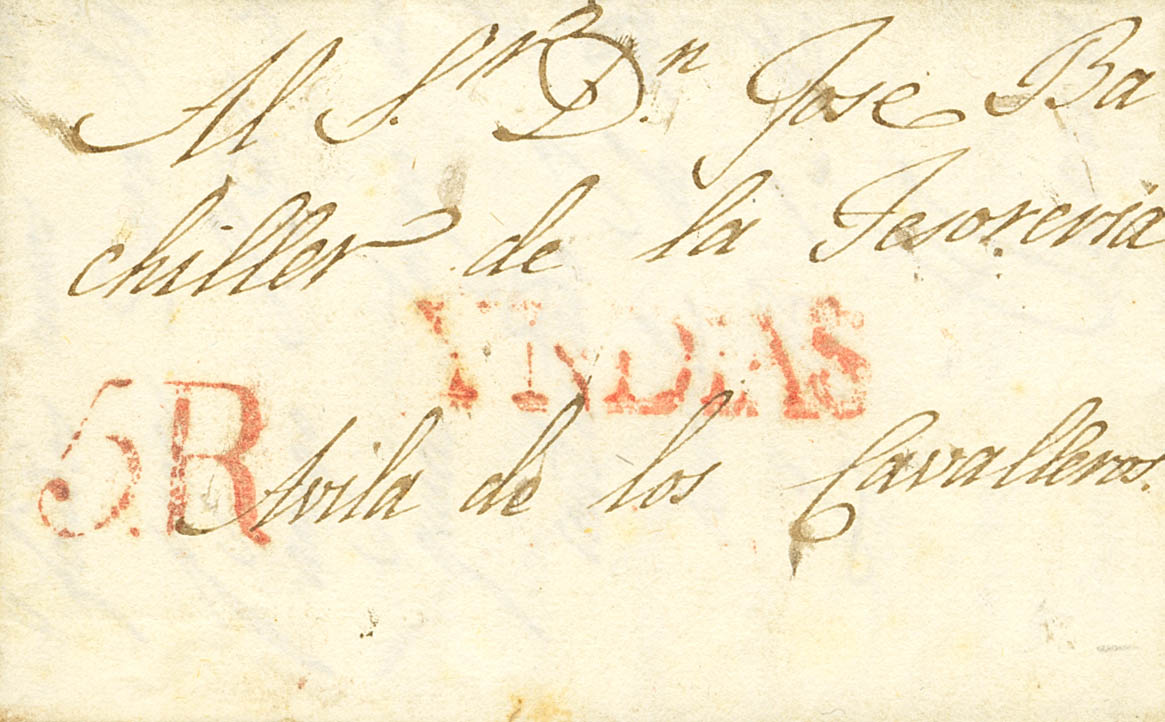 Al S.r D.n Jose Ba
chiller de la Tesoreria
YNDIAS
5R
Avila de los Cavalleros.